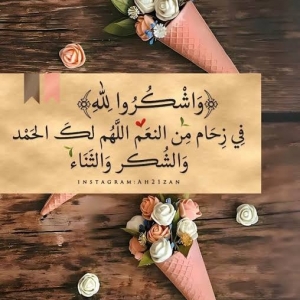 ﴿وَاشْكُرُوا لِلَّهِ﴾
فِي زِحَام مِنَ النعَم اللَّهُم لكَ الحَمْد
وَالشُكر وَالثَنَاء
INSTAGRAM:AH21ZAN